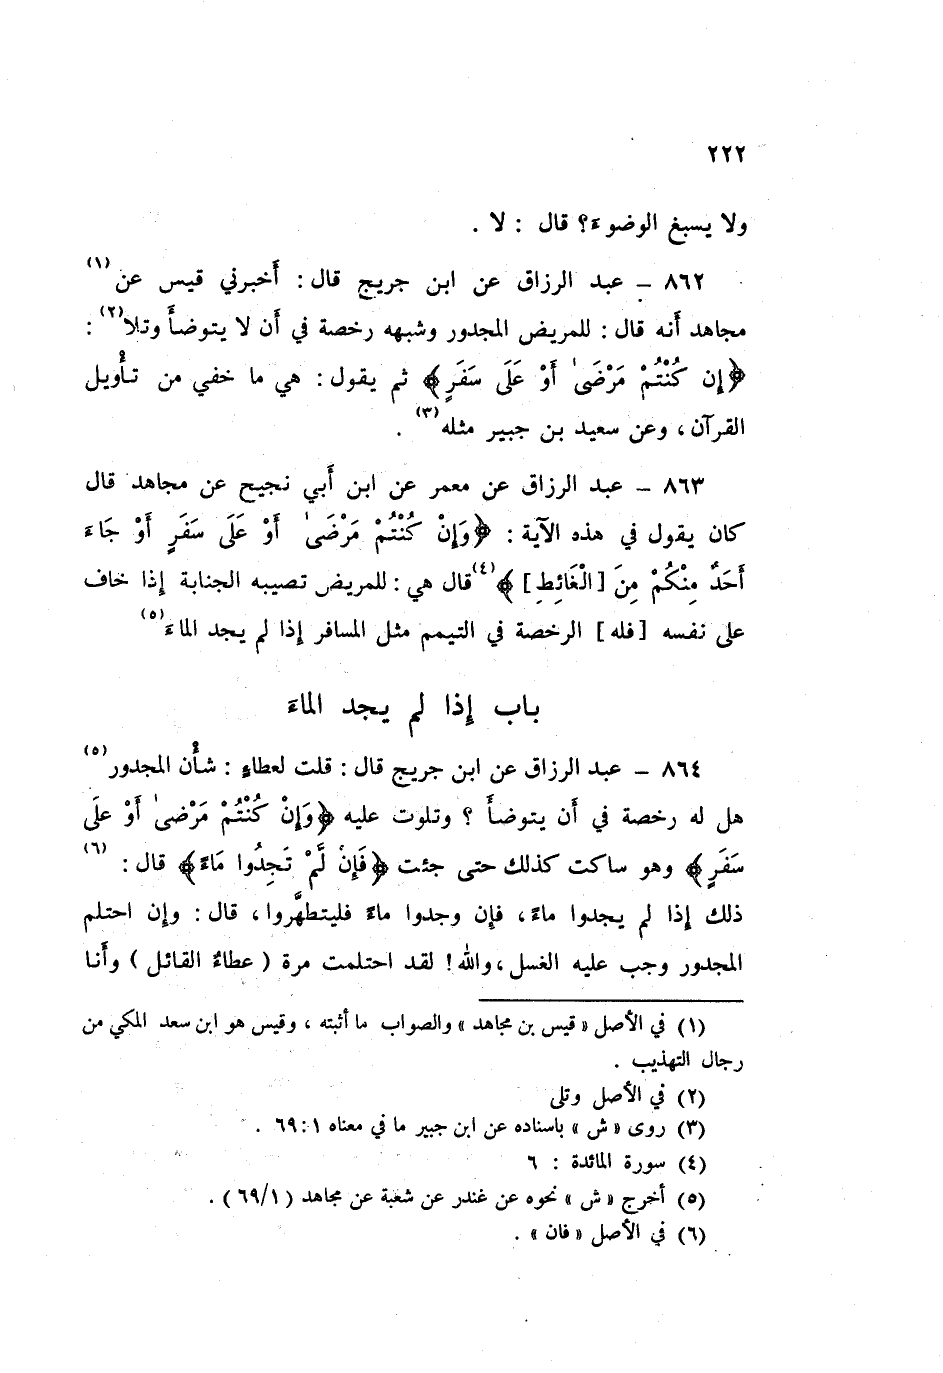 ٢٢٢
ولا يسبغ الوضوءَ؟ قال : لا .
٨٦٢ – عبد الرزاق عن ابن جريج قال : أَخبرني قيس عن(١)
مجاهد أَنه قال : للمريض المجدور وشبهه رخصة في أَن لا يتوضأَ وتلا(٢) :
﴿إِن كُنْتُمْ مَرْضَىٰ أَوْ عَلَى سَفَرٍ﴾ ثم يقول : هي ما خفي من تأْويل
القرآن ، وعن سعيد بن جبير مثله(٣) .
٨٦٣ – عبد الرزاق عن معمر عن ابن أَبي نجيح عن مجاهد قال
كان يقول في هذه الآية : ﴿وَإِنْ كُنْتُمْ مَرْضَىٰ أَوْ عَلَى سَفَرٍ أَوْ جَاءَ
أَحَدٌ مِنْكُمْ مِنَ [الْغَائِطِ] ﴾(٤) قال هي : للمريض تصيبه الجنابة إِذا خاف
على نفسه [فله] الرخصة في التيمم مثل المسافر إِذا لم يجد الماءَ(٥)
باب إِذا لم يجد الماءَ
٨٦٤ – عبد الرزاق عن ابن جريج قال : قلت لعطاءٍ : شأْن المجدور(٥)
هل له رخصة في أَن يتوضأَ ؟ وتلوت عليه ﴿وَإِنْ كُنْتُمْ مَرْضىٰ أَوْ عَلَى
سَفَرٍ﴾ وهو ساكت كذلك حتى جئت ﴿فَإِنْ لَّمْ تَجِدُوا مَاءً﴾ قال(٦) :
ذلك إِذا لم يجدوا ماءً ، فإِن وجدوا ماءً فليتطهَّروا ، قال : وإِن احتلم
المجدور وجب عليه الغسل ، والله! لقد احتلمت مرة ( عطاءٌ القائل ) وأَنا
(١) في الأصل « قيس بن مجاهد » والصواب ما أثبته ، وقيس هو ابن سعد المكي من
رجال التهذيب .
(٢) في الأصل وتلى
(٣) روى « ش » باسناده عن ابن جبير ما في معناه ١ : ٦٩ .
(٤) سورة المائدة : ٦
(٥) أخرج « ش » نحوه عن غندر عن شعبة عن مجاهد (٦٩/١) .
(٦) في الأصل « فان » .